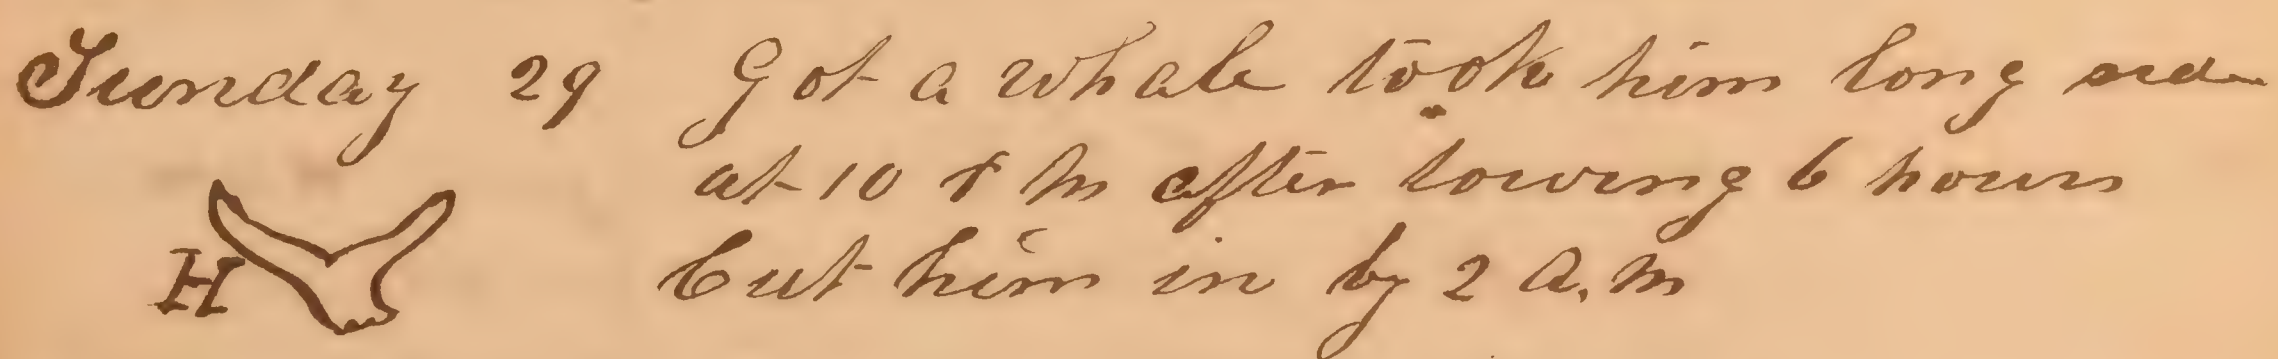 Sunday 29 Got a whale took him long side
at 10 P M after towing 6 hours
H Cut him in by 2 A. M